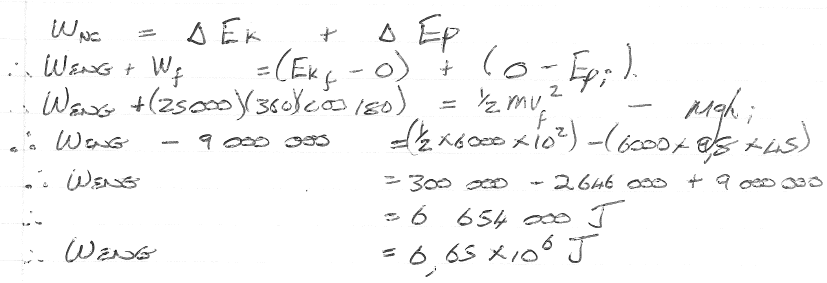 W_NC = Δ Ek + Δ Ep
∴ W_ENG + W_f = (Ek_f - 0) + (0 - Ep_i).
∴ W_ENG + (25000)(360)(cos 180) = ½ m v_f² - mgh_i
∴ W_ENG - 9 000 000 = (½ × 6000 × 10²) - (6000 × 9,8 × 45)
∴ W_ENG = 300 000 - 2646 000 + 9 000 000
∴ = 6 654 000 J
∴ W_ENG = 6,65 × 10⁶ J